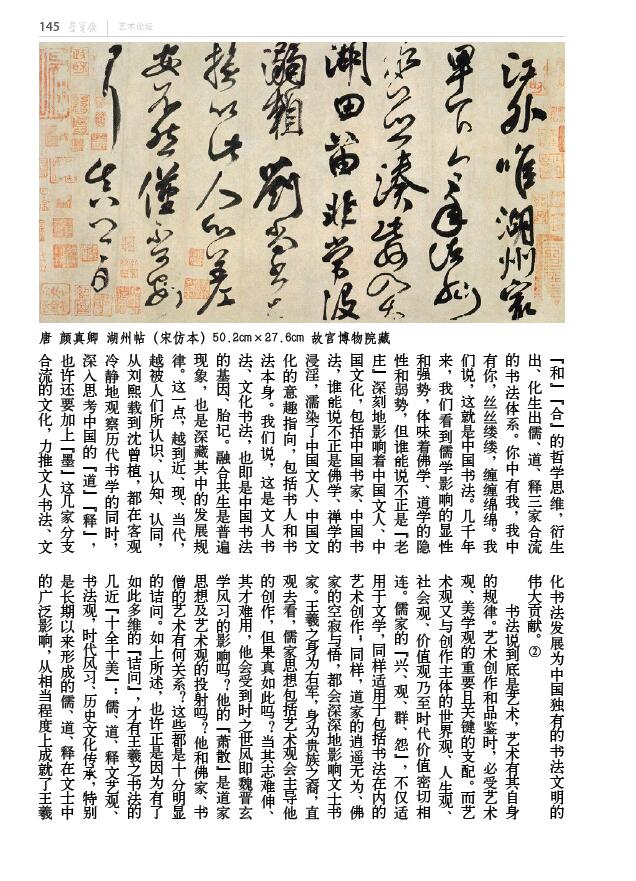 145 艺术论坛
江外唯湖州最
卑下今年諸州
水並湊此州入太
湖田苗非常没
溺賴劉尚書與
拯以此人心差
安不然僅不可安
耳真卿白
唐 颜真卿 湖州帖（宋仿本）50.2cm×27.6cm 故宫博物院藏
『和』『合』的哲学思维，衍生
出、化生出儒、道、释三家合流
的书法体系。你中有我，我中
有你，丝丝缕缕，缠缠绵绵。我
们说，这就是中国书法。几千年
来，我们看到儒学影响的显性
和强势，体味着佛学、道学的隐
性和弱势，但谁能说不正是『老
庄』深刻地影响着中国文人、中
国文化，包括中国书家、中国书
法，谁能说不正是佛学、禅学的
浸淫，濡染了中国文人、中国文
化的意趣指向，包括书人和书
法本身。我们说，这是文人书
法、文化书法，也即是中国书法
的基因、胎记。融合共生是普遍
现象，也是深藏其中的发展规
律。这一点，越到近、现、当代，
越被人们所认识、认知、认同，
从刘熙载到沈曾植，都在客观
冷静地观察历代书学的同时，
深入思考中国的『道』『释』，
也许还要加上『墨』这几家分支
合流的文化，力推文人书法、文
化书法发展为中国独有的书法文明的
伟大贡献。②
书法说到底是艺术，艺术有其自身
的规律。艺术创作和品鉴时，必受艺术
观、美学观的重要且关键的支配。而艺
术观又与创作主体的世界观、人生观、
社会观、价值观乃至时代价值密切相
连。儒家的『兴、观、群、怨』，不仅适
用于文学，同样适用于包括书法在内的
艺术创作；同样，道家的逍遥无为、佛
家的空寂与悟，都会深深地影响文士书
家。王羲之身为右军，身为贵族之裔，直
观去看，儒家思想包括艺术观会主导他
的创作，但果真如此吗？当其志难伸、
其才难用，他会受到时之世风即魏晋玄
学风习的影响吗？他的『萧散』是道家
思想及艺术观的投射吗？他和佛家、书
僧的艺术有何关系？这些都是十分明显
的诘问。如上所述，也许正是因为有了
如此多维的『诘问』，才有王羲之书法的
几近『十全十美』：儒、道、释文艺观、
书法观，时代风习、历史文化传承，特别
是长期以来形成的儒、道、释在文士中
的广泛影响，从相当程度上成就了王羲